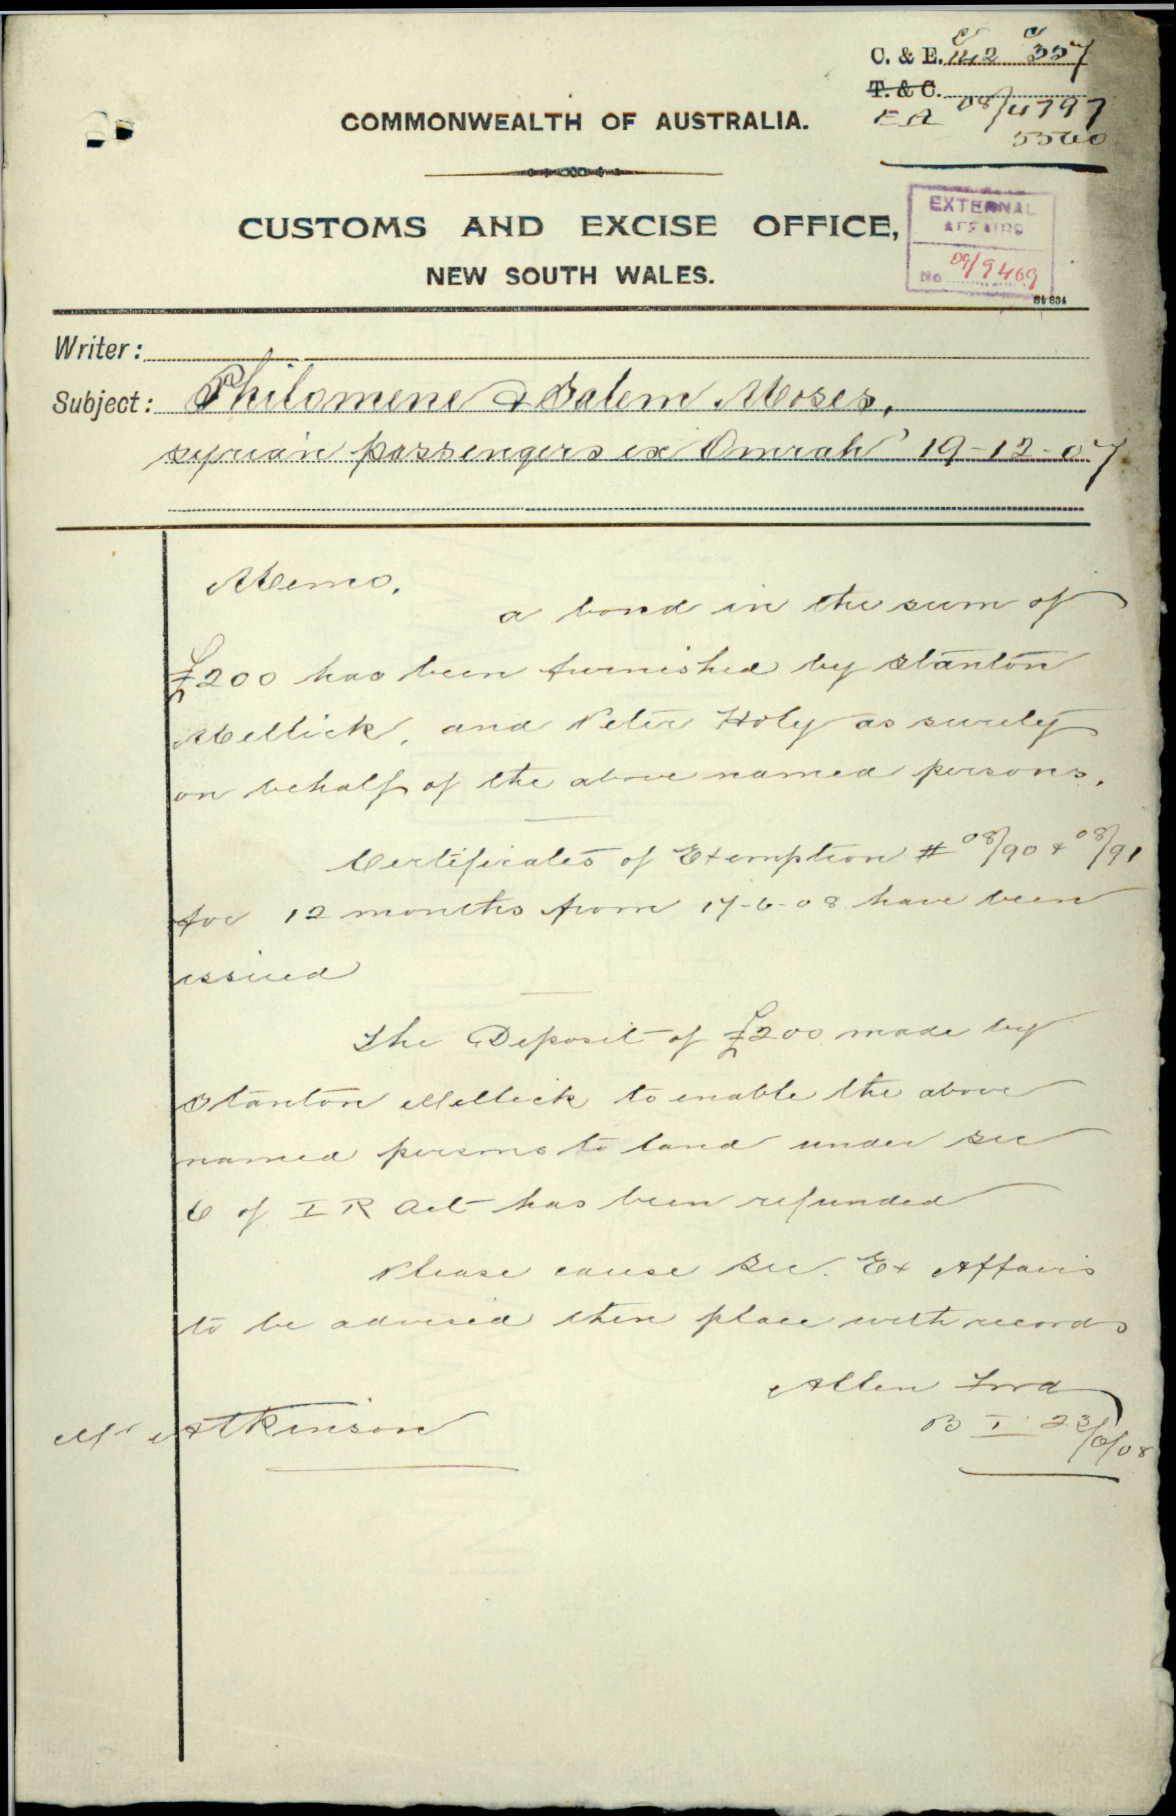 C. & E. C/142 C/337
T. & C.
EA 08/4797
5560
COMMONWEALTH OF AUSTRALIA.
CUSTOMS AND EXCISE OFFICE,
NEW SOUTH WALES.
EXTERNAL
AFFAIRS
No 09/9469
Writer:
Subject: Philomene & Salem Moses,
syrian passengers ex Omrah 19-12-07
Memo.
a bond in the sum of
£200 has been furnished by Stanton
Mellick, and Peter Holy as surety
on behalf of the above named persons.
Certificates of Exemption # 08/90 & 08/91
for 12 months from 17-6-08 have been
issued
The Deposit of £200 made by
Stanton Mellick to enable the above
named persons to land under sec
6 of I R Act has been refunded
Please cause Sec. Ex Affairs
to be advised then place with records
Allen
B I 23/6/08
Mr Atkinson